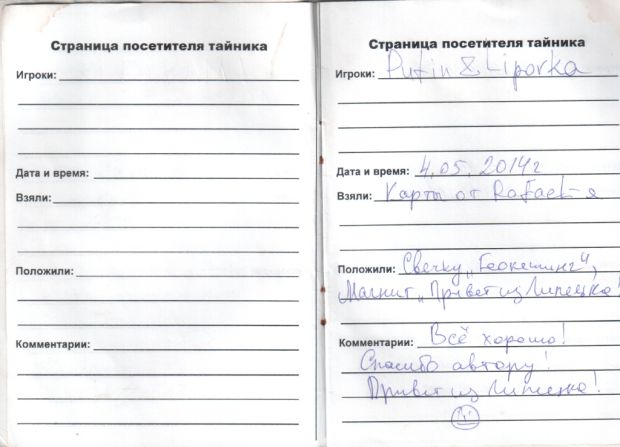 Страница посетителя тайника
Игроки:
Дата и время:
Взяли:
Положили:
Комментарии:
Страница посетителя тайника
Игроки: Putin & Liporka
Дата и время: 4.05.2014г
Взяли: Карты от Rafael-я
Положили: Свечку „Геокешинг",
Магнит „Привет из Липецка!
Комментарии: Всё хорошо!
Спасибо автору!
Привет из Липецка!